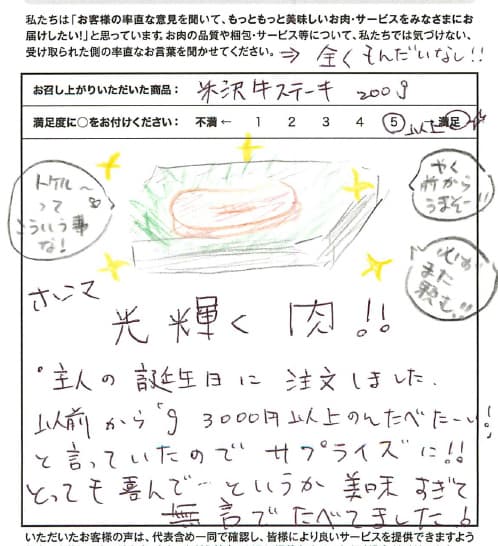 私たちは「お客様の率直な意見を聞いて、もっともっと美味しいお肉・サービスをみなさまにお
届けしたい！」と思っています。お肉の品質や梱包・サービス等について、私たちでは気づけない、
受け取られた側の率直なお言葉を聞かせてください。⇒ 全くもんだいなし!!
お召し上がりいただいた商品： 米沢牛ステーキ 200g
満足度に○をお付けください： 不満 ← 1 2 3 4 5 以上 → 満足
トケル～
って
こういう事
な！
やく
前から
うまそー!!
次は
また
頼む!!
ホンマ
光輝く肉!!
・主人の誕生日に注文しました。
以前から「g 3000円以上のんたべたーい!」
と言っていたのでサプライズに!!
とっても喜んで…というか美味すぎて
無言でたべてました
いただいたお客様の声は、代表含め全一同で確認し、皆様により良いサービスを提供できますよう